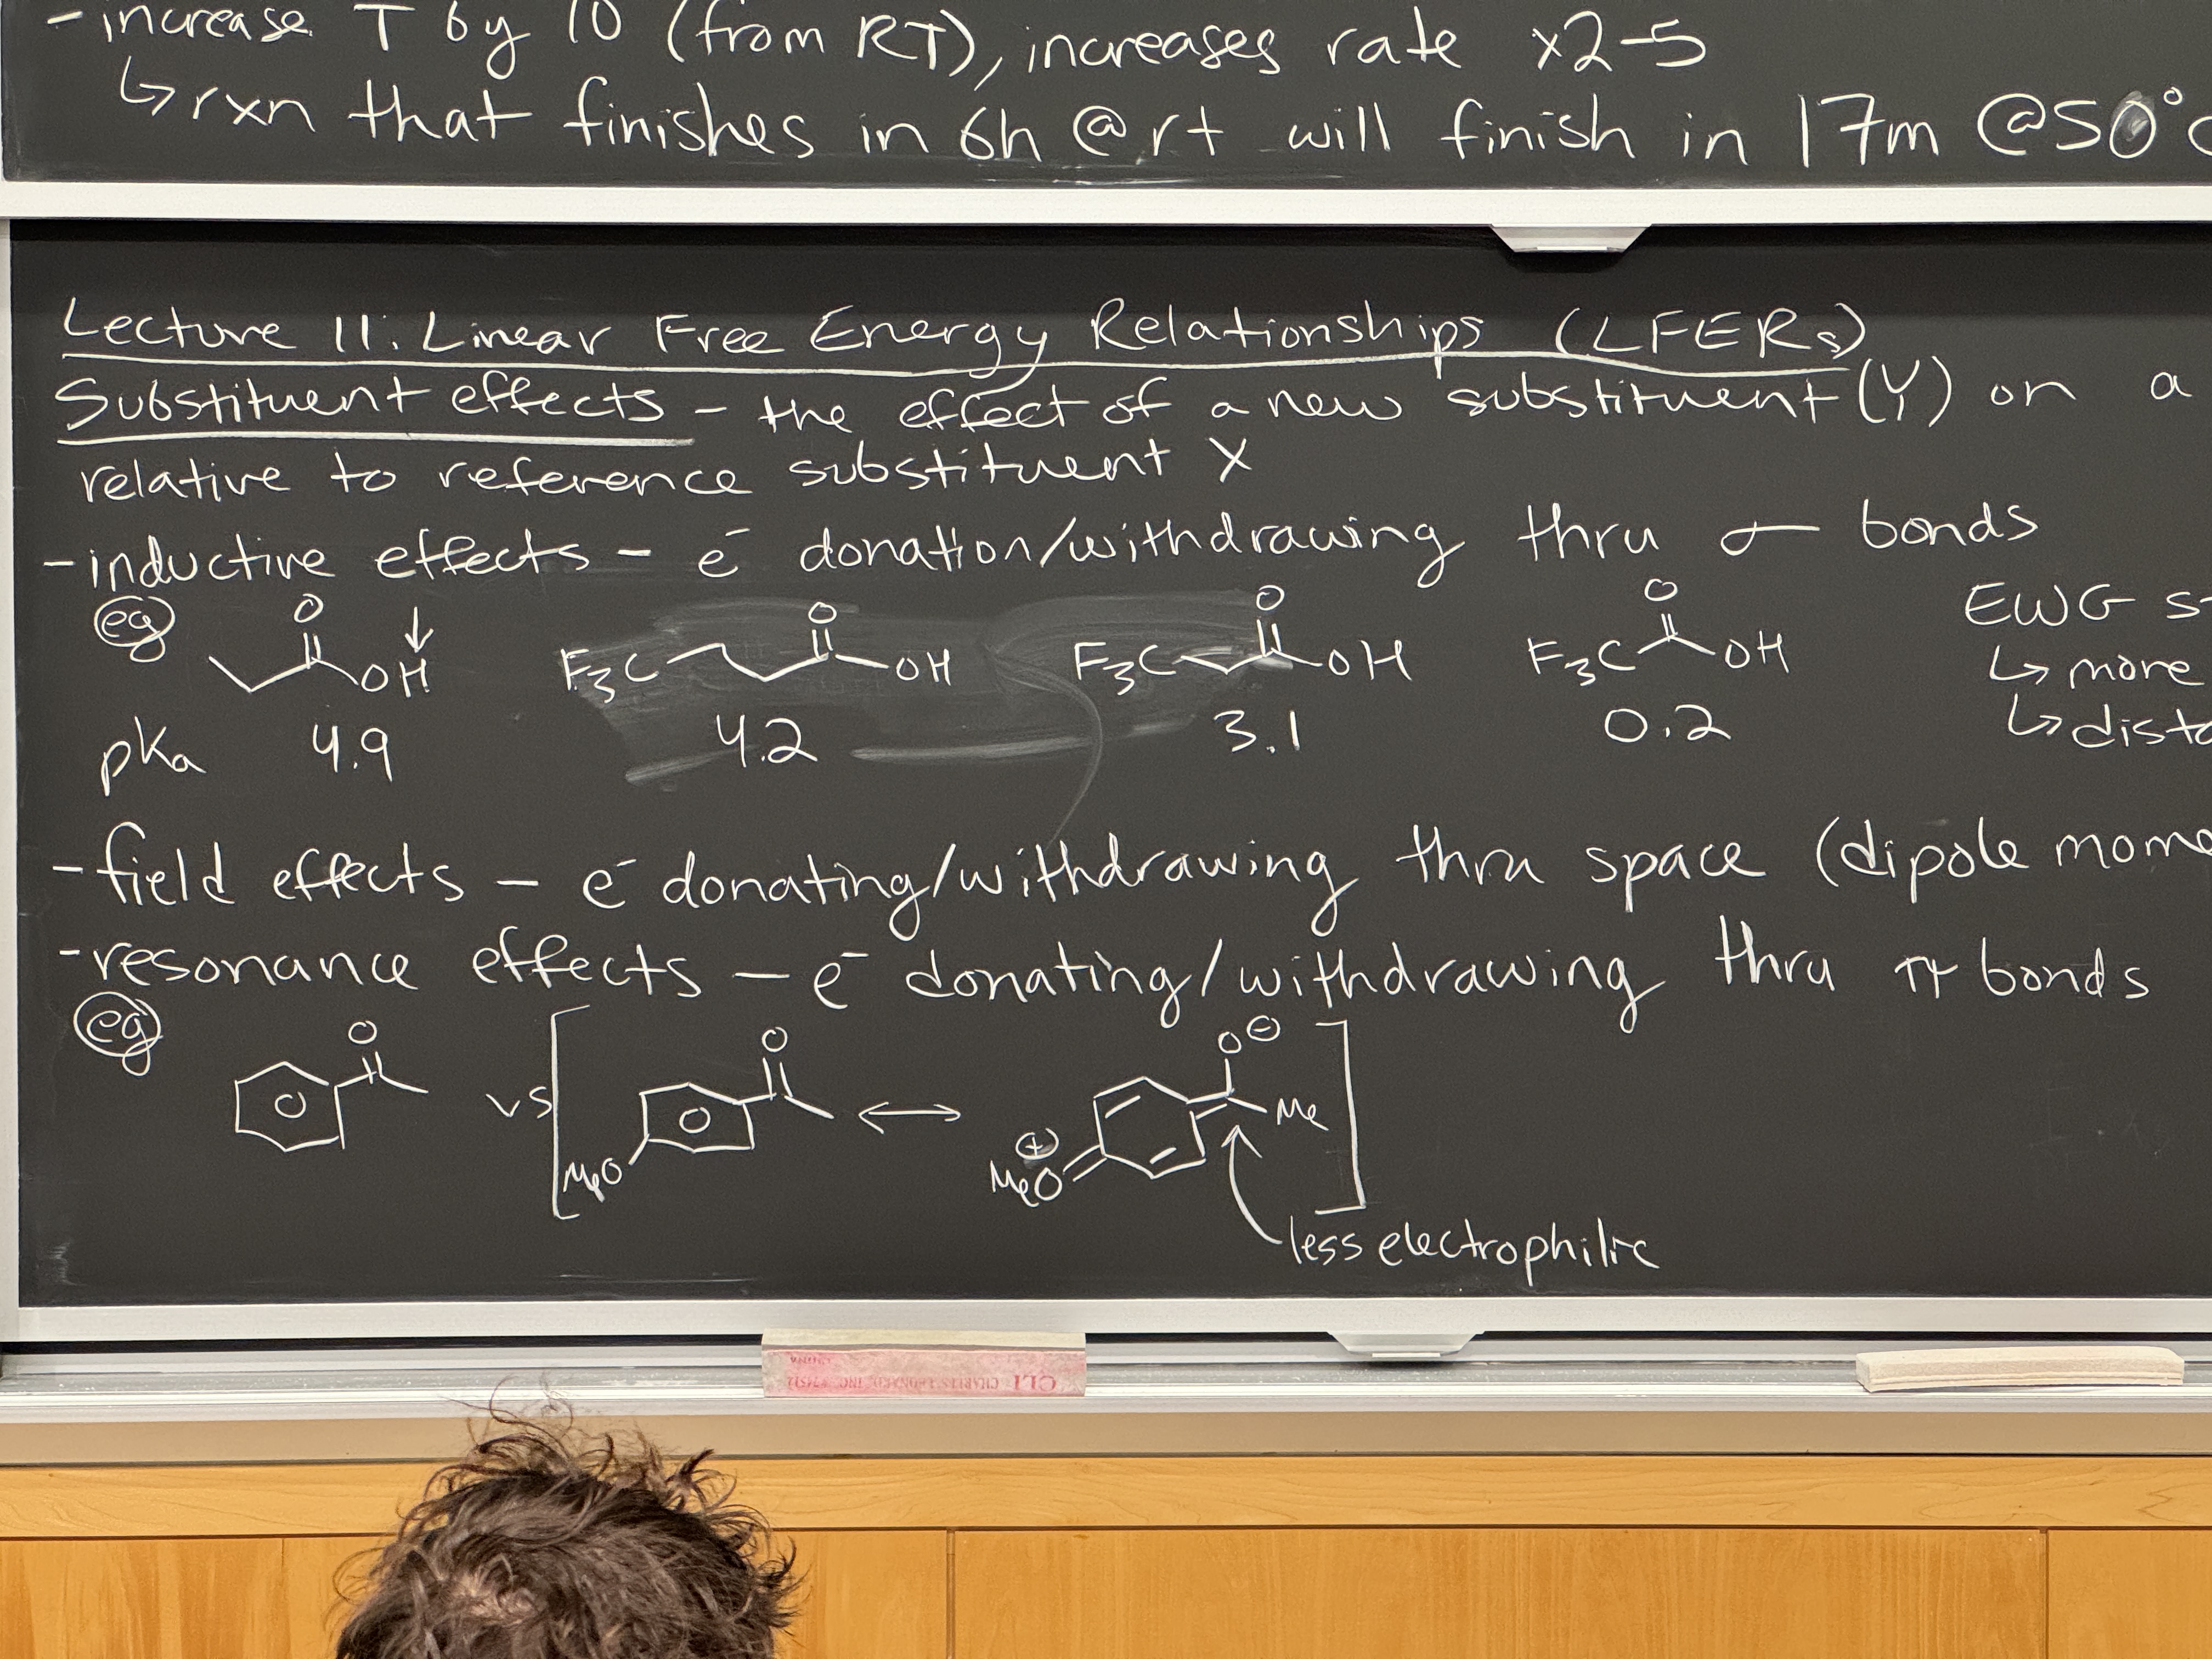 - increase T by 10 (from RT), increases rate x2-5
↳ rxn that finishes in 6h @ rt will finish in 17m @50°c
Lecture 11: Linear Free Energy Relationships (LFERs)
Substituent effects - the effect of a new substituent (Y) on a
relative to reference substituent X
- inductive effects - e⁻ donation/withdrawing thru σ bonds
eg O OH ↓ F₃C O OH F₃C O OH F₃C O OH EWG s
↳ more
pKa 4.9 4.2 3.1 0.2 ↳ dista
- field effects - e⁻ donating/withdrawing thru space (dipole mome
- resonance effects - e⁻ donating/withdrawing thru π bonds
eg O vs [ MeO O ↔ ⊕ MeO O ⊖ Me ]
less electrophilic
CLI